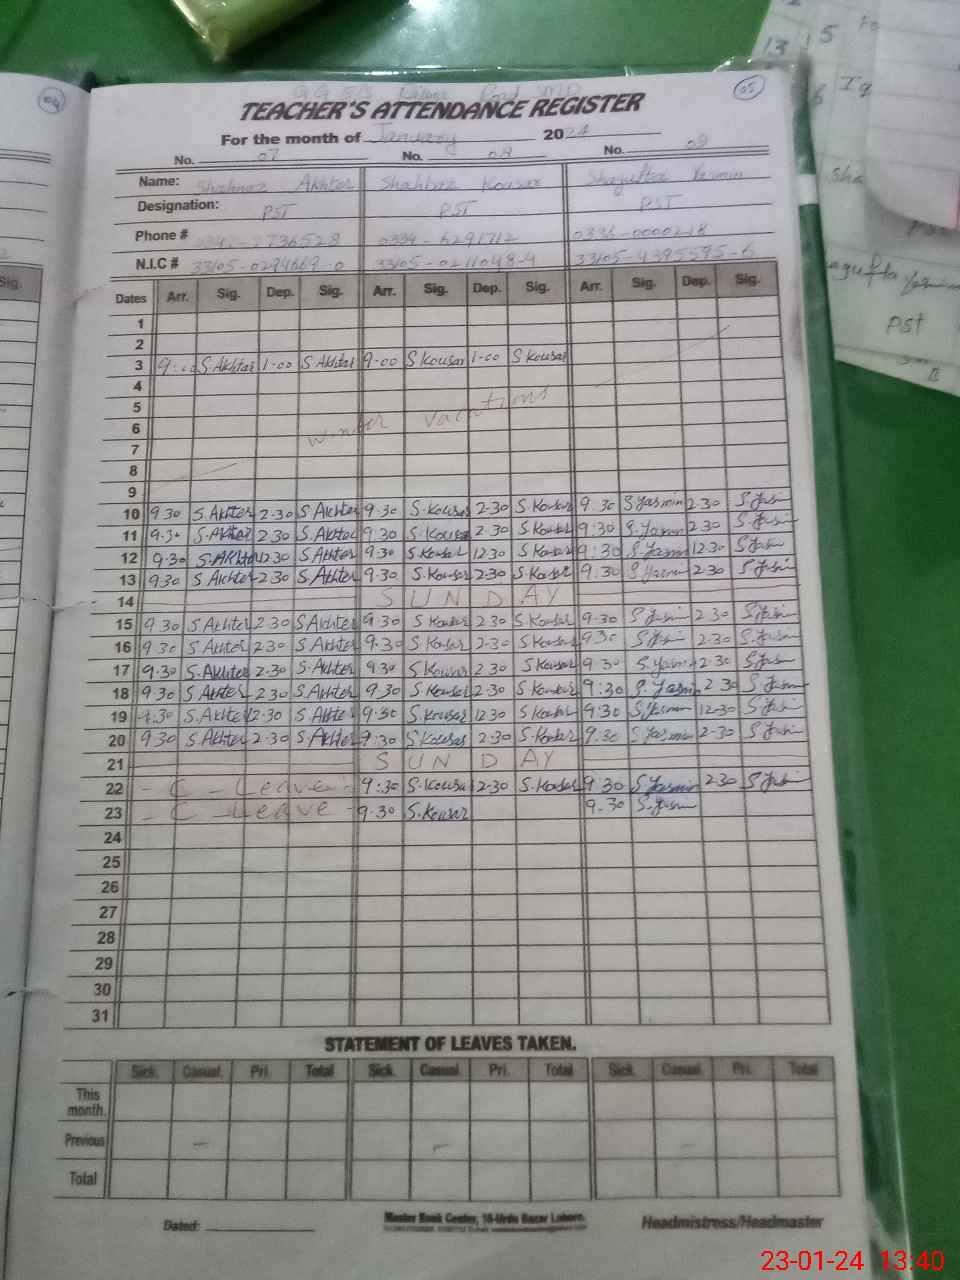 05
TEACHER'S ATTENDANCE REGISTER
For the month of January 2024
No. 07 No. 08 No. 09
Name: Shahnaz Akhter Shahbaz Kousar Shagufta Yasmin
Designation: PST PST PST
Phone # 0342-7736528 0334-6291712 0336-0000218
N.I.C # 33105-0294669-0 33105-0211048-4 33105-4395595-6
Dates Arr. Sig. Dep. Sig. Arr. Sig. Dep. Sig. Arr. Sig. Dep. Sig.
1
2
3 9:00 S.Akhter 1-00 S.Akhter 9-00 S Kousar 1-00 S Kousar
4
5
winter vacations
6
7
8
9
10 9 30 S.Akhter 2-30 S Akhter 9-30 S.Kousar 2-30 S Kousar 9.30 S Yasmin 2-30 S.Yasmin
11 9.30 S.Akhter 2 30 S.Akhter 9 30 S.Kousar 2 30 S Kousar 9:30 S.Yasmin 2 30 S.Yasmin
12 9.30 S.Akhter 12.30 S.Akhter 9-30 S Kousar 12.30 S Kousar 9:30 S.Yasmin 12.30 S Yasmin
13 9.30 S Akhter 2-30 S.Akhter 9.30 S.Kousar 2-30 S.Kousar 9.30 S Yasmin 2-30 S.Yasmin
14 SUNDAY
15 9 30 S.Akhter 2-30 S.Akhter 9-30 S Kousar 2 30 S Kousar 9-30 S Yasmin 2 30 S.Yasmin
16 9 30 S.Akhter 2-30 S.Akhter 9.30 S.Kousar 2-30 S.Kousar 9 30 S.Yasmin 2-30 S.Yasmin
17 9.30 S.Akhter 2-30 S.Akhter 9 30 S Kousar 2 30 S Kousar 9.30 S.Yasmin 2-30 S.Yasmin
18 9 30 S.Akhter 2 30 S.Akhter 9-30 S Kousar 2-30 S Kousar 9:30 S. Yasmin 2 30 S.Yasmin
19 9.30 S.Akhter 12-30 S.Akhter 9:30 S.Kousar 12 30 S Kousar 9:30 S.Yasmin 12-30 S.Yasmin
20 9 30 S.Akhter 2-30 S.Akhter 9:30 S.Kousar 2-30 S.Kousar 9:30 S.Yasmin 2-30 S.Yasmin
21 SUNDAY
22 - C - Leave - 9:30 S.Kousar 2-30 S.Kousar 9.30 S Yasmin 2-30 S.Yasmin
23 - C - Leave - 9-30 S.Kousar 9.30 S.Yasmin
24
25
26
27
28
29
30
31
STATEMENT OF LEAVES TAKEN.
Sick. Casual. Pri. Total Sick. Casual. Pri. Total Sick. Casual. Pri. Total
This month.
Previous - - -
Total
Dated: Master Book Center, 16-Urdu Bazar Lahore. Headmistress/Headmaster
04
Sig.
13 15
Shagufta Yasmin
PST
23-01-24 13:40